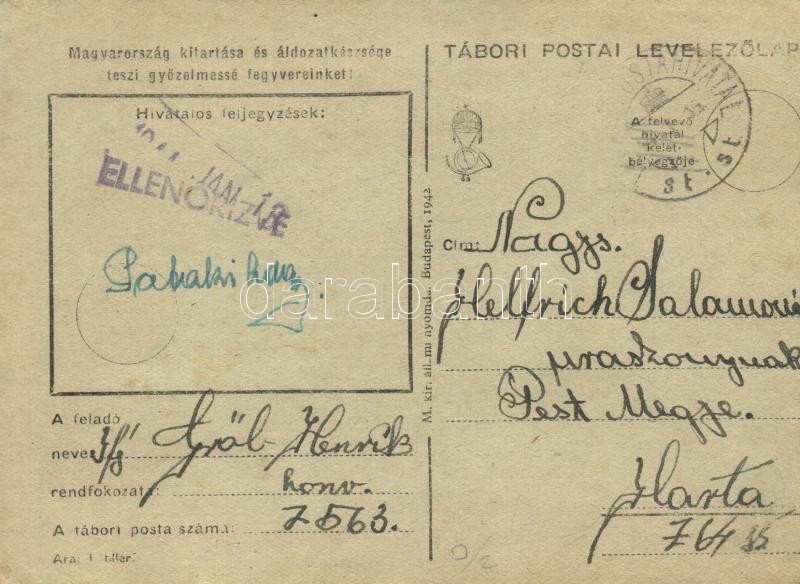 Magyarország kitartása és áldozatkészsége
teszi győzelmessé fegyvereinket!
Hivatalos feljegyzések:
JAN. 1
ELLENŐRIZVE
A feladó
neve: Ifj. Gräb Henrik
rendfokozata: honv.
A tábori posta száma: 7563.
Ára: 1 fillér
M. kir. áll. mi nyomda. Budapest, 1942
TÁBORI POSTAI LEVELEZŐLAP
A felvevő
hivatal
kelet-
bélyegzője
st. st.
Cím: Nagys.
Helfrich Salamon
uraszonynak
Pest Megye.
Harta
764
darabanth